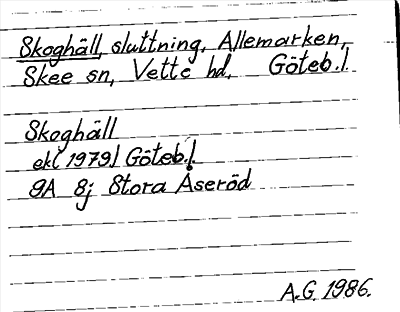 Skoghäll, sluttning, Allemarken,
Skee sn, Vette hd, Göteb.l.
Skoghäll
ekl 1979/ Göteb.l.
9A 8j Stora Åseröd
A.G. 1986.